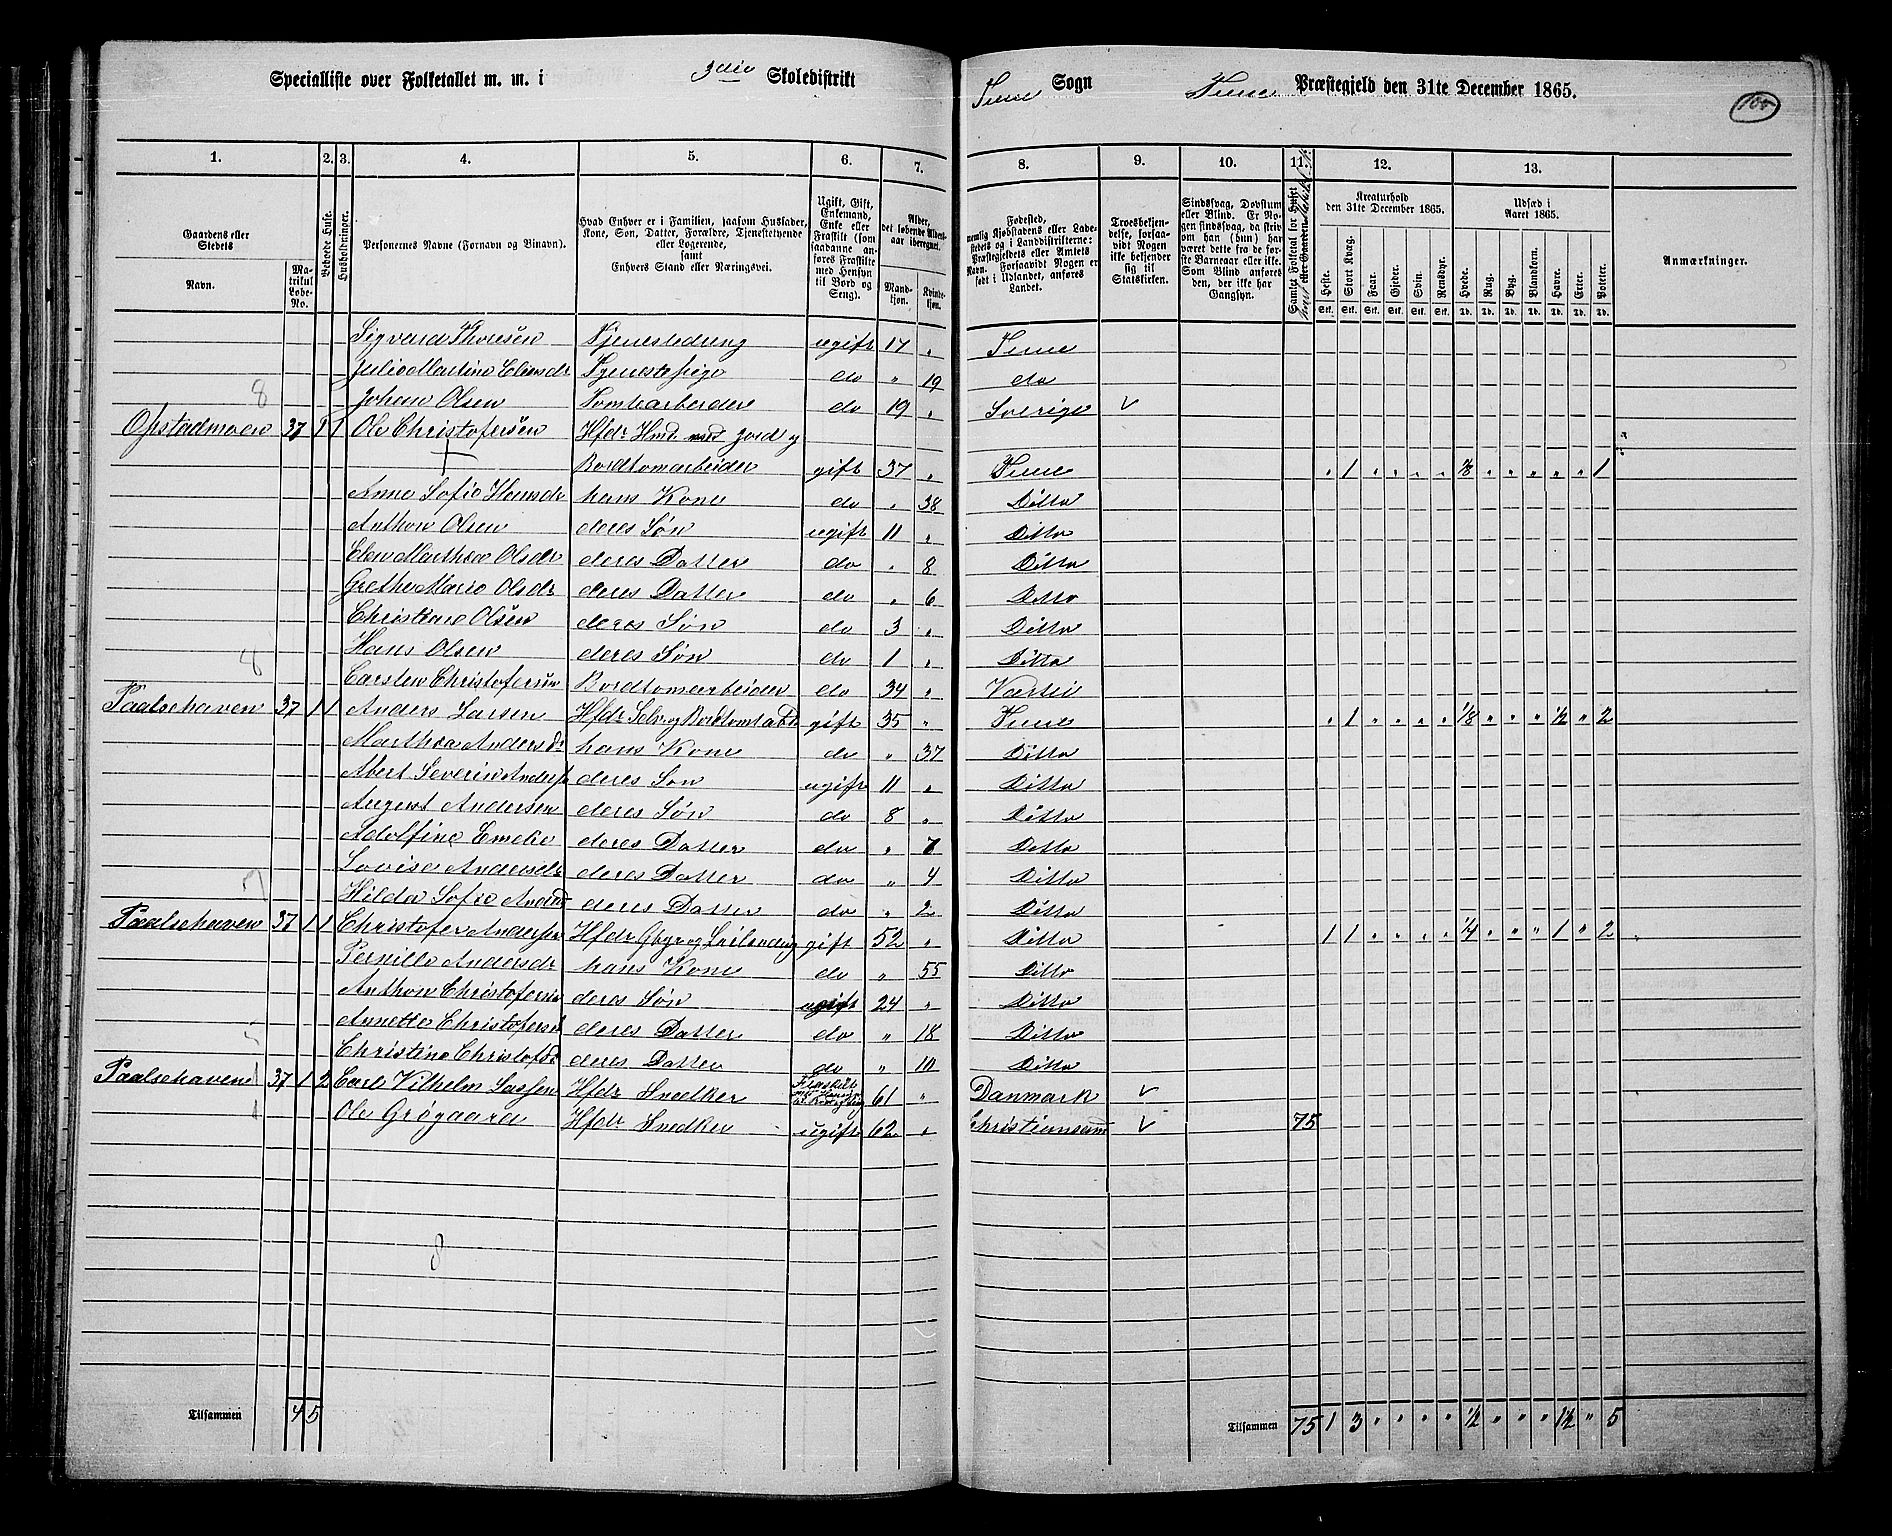 Specialliste over Folketallet m. m. i 3die Skoledistrikt Tune Sogn Tune Præstegjeld den 31te December 1865.
100
1. 2. 3. 4. 5. 6. 7. 8. 9. 10. 11. 12. 13.
Gaardens eller Stedets
Navn.
Matrikul Løbe-No.
Beboede Huse.
Husholdninger.
Personernes Navne (Fornavn og Binavn).
Hvad Enhver er i Familien, saasom Husfader, Kone, Søn, Datter, Forældre, Tjenestetyende eller Logerende, samt Enhvers Stand eller Næringsvei.
Ugift, Gift, Enkemand, Enke eller Fraskilt (som saadanne anføres Fraskilte med Hensyn til Bord og Seng).
Alder, det løbende Alders-aar iberegnet.
Mandkjøn. Kvindekjøn.
Fødested, nemlig Kjøbstadens eller Ladestedets og i Landdistrikterne: Præstegjeldets eller Amtets Navn. Forsaavidt Nogen er født i Udlandet, anføres Landet.
Troesbekjendelse, forsaavidt Nogen ikke bekjender sig til Statskirken.
Sindssvag, Døvstum eller Blind. Er Nogen sindssvag, da skrives om han (hun) har været dette fra de første Barneaar eller ikke. Som Blind anføres den, der ikke har Gangsyn.
Samlet Folketal for Huset
Kreaturhold den 31te December 1865.
Heste. Stort Kvæg. Faar. Gjeder. Svin. Rensdyr.
Udsæd i Aaret 1865.
Hvede. Rug. Byg. Blandkorn. Havre. Erter. Poteter.
Anmærkninger.
Sigvard Thoresen Tjenestedreng ugift 17 " Tune
Julie Martine Eliasdr Tjenestepige do " 19 do
8 Johan Olsen Tomtearbeider do 19 " Sverige
Opstadmoen 37 1 1 Ole Christofersen Hfdr Hmd med Jord og
Bordtomtarbeider gift 37 " Tune " 1 " " " " 1/8 " " " " " 1
Anne Sofie Hansdr hans Kone do " 38 Ditto
Anthon Olsen deres Søn ugift 11 " Ditto
Elen Marthea Olsdr deres Datter do " 8 Ditto
Grethe Marie Olsdr deres Datter do " 6 Ditto
Christian Olsen deres Søn do 3 " Ditto
8 Hans Olsen deres Søn do 1 " Ditto
Carsten Christofersen Bordtomtarbeider do 34 " Vartei
Paalsehaven 37 1 1 Anders Larsen Hfdr Selv. og Bordtomtarb gift 35 " Tune " 1 " " " " 1/8 " " " 1/2 " 2
Marthea Andersdr hans Kone do " 37 Ditto
Abert Severin Anders. deres Søn ugift 11 " Ditto
August Andersen deres Søn do 8 " Ditto
Adolfine Emelie deres Datter do " 7 Ditto
7 Lovise Andersdr deres Datter do " 4 Ditto
Hilda Sofie Andersd deres Datter do " 2 Ditto
Paalsehaven 37 1 1 Christofer Andersen Hfdr Gbr og Leilending gift 52 " Ditto 1 1 " " " " 1/4 " " " 1 " 2
Pernille Andersdr hans Kone do " 55 Ditto
Anthon Christofersen deres Søn ugift 24 " Ditto
5 Annette Christofersd deres Datter do " 18 Ditto
Christine Christofdr deres Datter do " 10 Ditto
Paalsehaven 37 1 2 Carl Vilhelm Sassen Hfdr Snedker Fraskilt 61 " Danmark
Ole Grøgaard Hfdr Snedker ugift 62 " Christiansand 75
8
Tilsammen 4 5
Tilsammen 75 1 3 " " " " 1/2 " " " 1 1/2 " 5